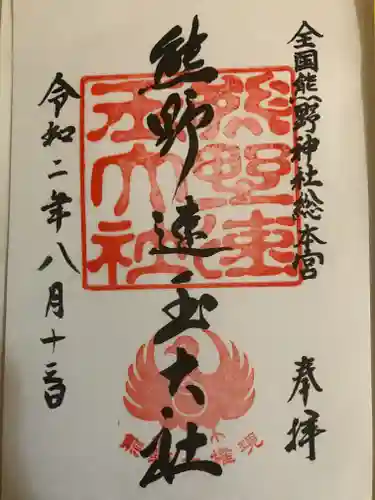 全国熊野神社総本宮
奉拝
熊野速玉大社
熊野速玉大社
令和二年八月十三日
熊野権現